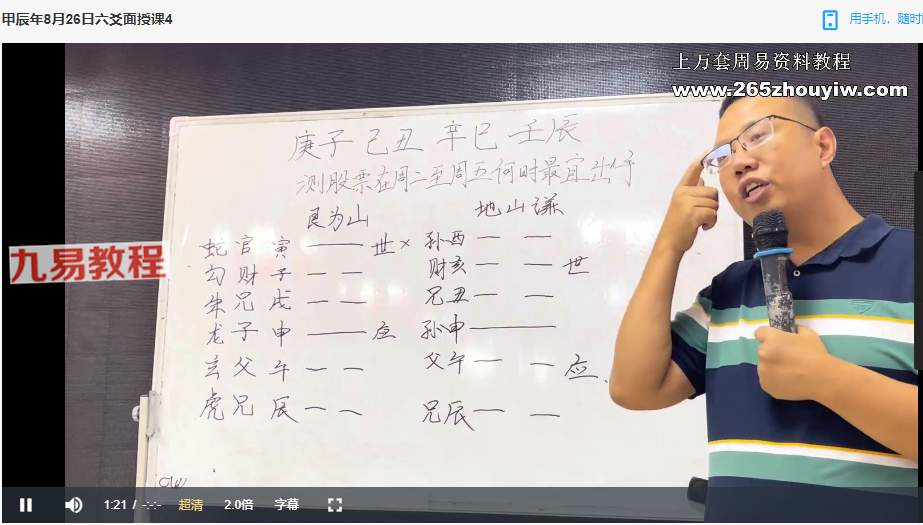 甲辰年8月26日六爻面授课4
用手机，随时
上万套周易资料教程
www.265zhouyiw.com
庚子 己丑 辛巳 壬辰
测股票在周二至周五何时最宜出行
艮为山 地山谦
九易教程
蛇官寅 世× 孙酉
勾财子 财亥 世
朱兄戌 兄丑
龙子申 应 孙申
玄父午 父午 应
虎兄辰 兄辰
1:21 / -:-:- 超清 2.0倍 字幕